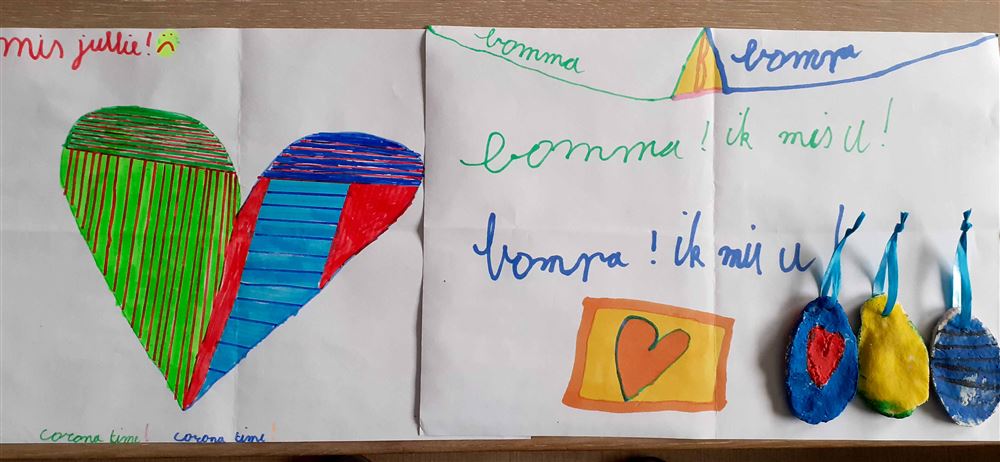 mis jullie!
corona time! corona time!
bomma B bompa
bomma! ik mis U!
bompa! ik mis u!